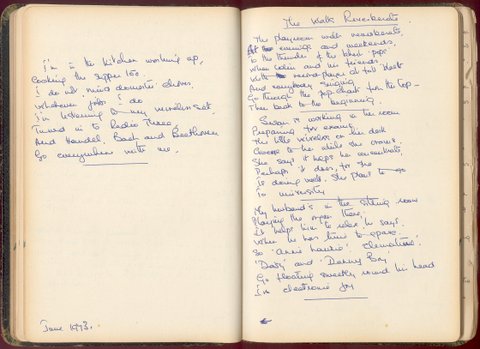 I'm in the kitchen washing up,
Cooking the supper too
I do not mind domestic chores.
Whatever jobs I do
I'm listening to my wireless set
Tuned in to Radio Three,
And Handel, Bach and Beethoven
Go everywhere with me.
June 1973.
The Walls Reverberate.
The playroom walls reverberate,
At evenings and weekends,
To the thunder of the latest pops
When Colin and his friends
With record player at full blast
And everybody singing
Go through the pop chart to the top -
Then back to the beginning.
Susan is working in her room
Preparing for exams,
The little wireless on the desk
Close to her while she crams.
She says it helps her concentrate,
Perhaps it does, for she
Is doing well. She plans to go
To university
My husband's in the sitting room
Playing the organ there,
It helps him to relax he says
When he has time to spare
So 'Annie Laurie', 'Clementine'
'Daisy' and 'Danny Boy'
Go floating sweetly round his head
In electronic joy